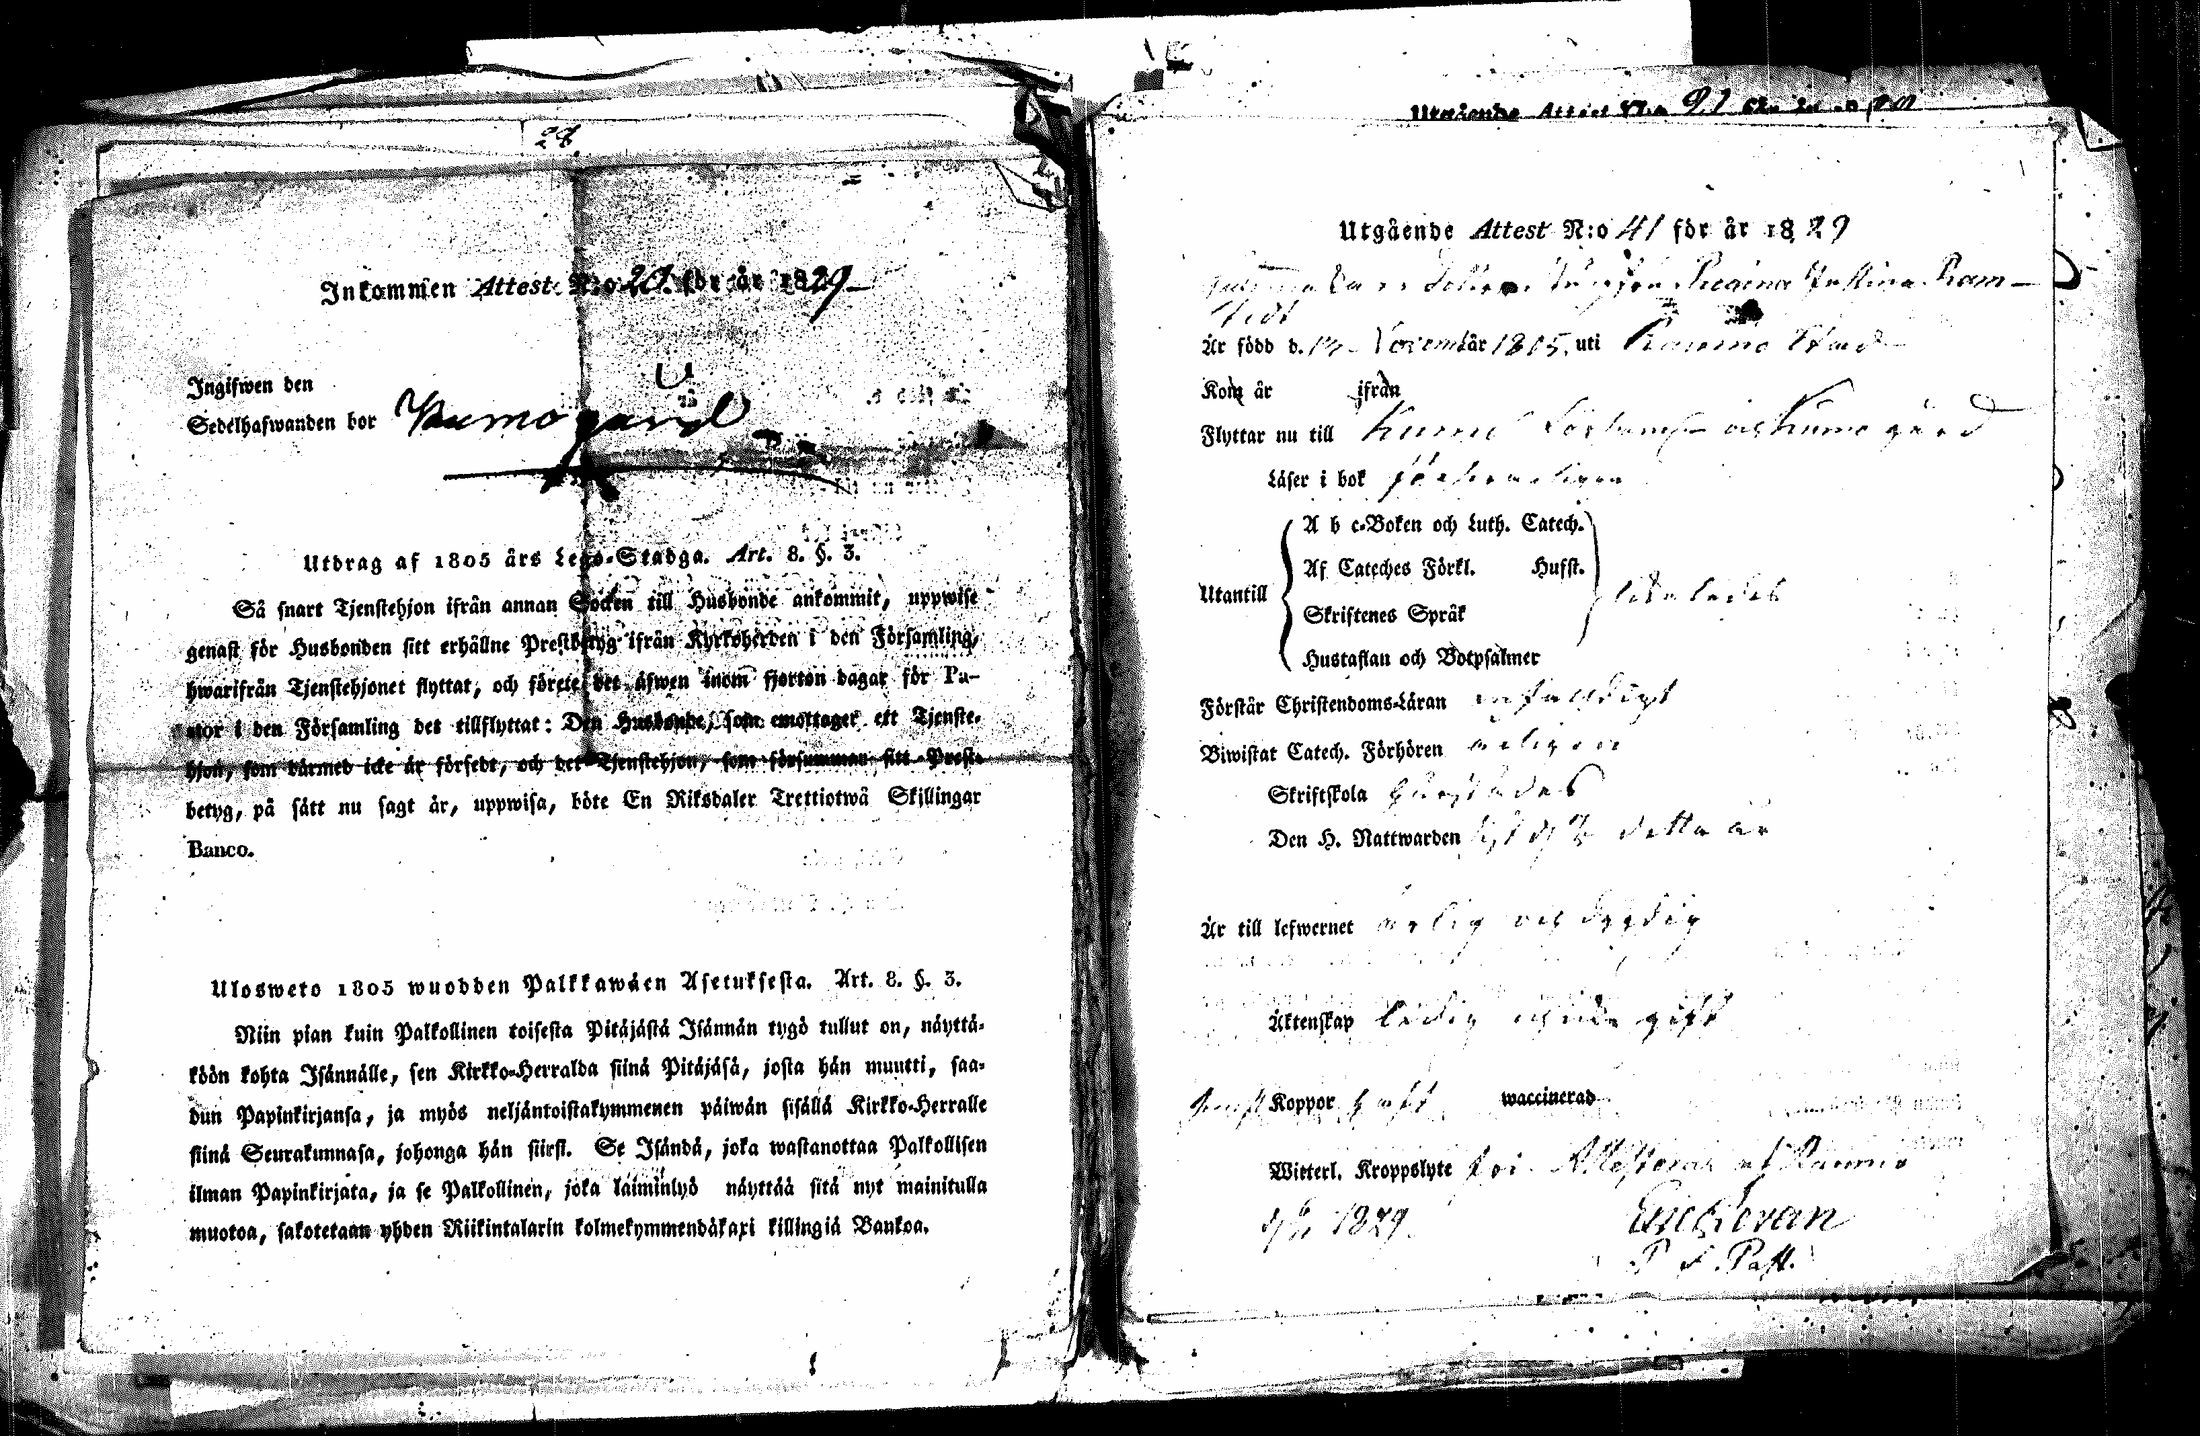 28.
Inkommen Attest N:o 29. för år 1829
Ingifwen den
Sedelhafwanden bor på Kumo gård
Utdrag af 1805 års Lego-Stadga. Art. 8. §. 3.
Så snart Tjenstehjon ifrån annan Socken till Husbonde ankommit, uppwise
genast för Husbonden sitt erhållne Prestbetyg ifrån Kyrkoherden i den Församling,
hwarifrån Tjenstehjonet flyttat, och förete det äfwen inom fjorton dagar för Pa-
stor i den Församling det tillflyttat: Den Husbonde, som emottager ett Tjenste-
hjon, som därmed icke är försedt, och det Tjenstehjon, som försummar sitt Prest-
betyg, på sätt nu sagt är, uppwisa, böte En Riksdaler Trettiotwå Skillingar
Banco.
Ulosweto 1805 wuodden Palkkawäen Asetuksesta. Art. 8. §. 3.
Niin pian kuin Palkollinen toisesta Pitäjästä Isännän tygö tullut on, näyttä-
köön kohta Isännälle, sen Kirkko-Herralda siinä Pitäjäsä, josta hän muutti, saa-
dun Papinkirjansa, ja myös neljäntoistakymmenen päiwän sisällä Kirkko-Herralle
siinä Seurakunnasa, johonga hän siirsi. Se Isändä, joka wastanottaa Palkollisen
ilman Papinkirjata, ja se Palkollinen, joka laiminlyö näyttää sitä nyt mainitulla
muotoa, sakotetaan yhden Riikintalarin kolmekymmendäkaxi killingiä Bankoa.
Attest 91
Utgående Attest N:o 41 för år 1829
Jungfru Regina Justina Ram-
stedt
Är född d. Novemb år 1805. uti Raumo Stad
Kom år ifrån
Flyttar nu till Kumo Församl och Kumo gård
Läser i bok försvarligen
A b c-Boken och Luth. Catech.
Af Cateches Förkl. Hufst.
Utantill likaledes
Skriftenes Språk
Hustaflan och Botpsalmer
Förstår Christendoms-Läran enfaldigt
Biwistat Catech. Förhören årligen
Skriftskola
Den H. Nattwarden detta år
Är till lefwernet ärlig och dygdig
Äktenskap ledig gift
Koppor haft waccinerad
Witterl. Kroppslyte fri. Attesterar af Raumo
1829. Eric Levan
P Past.